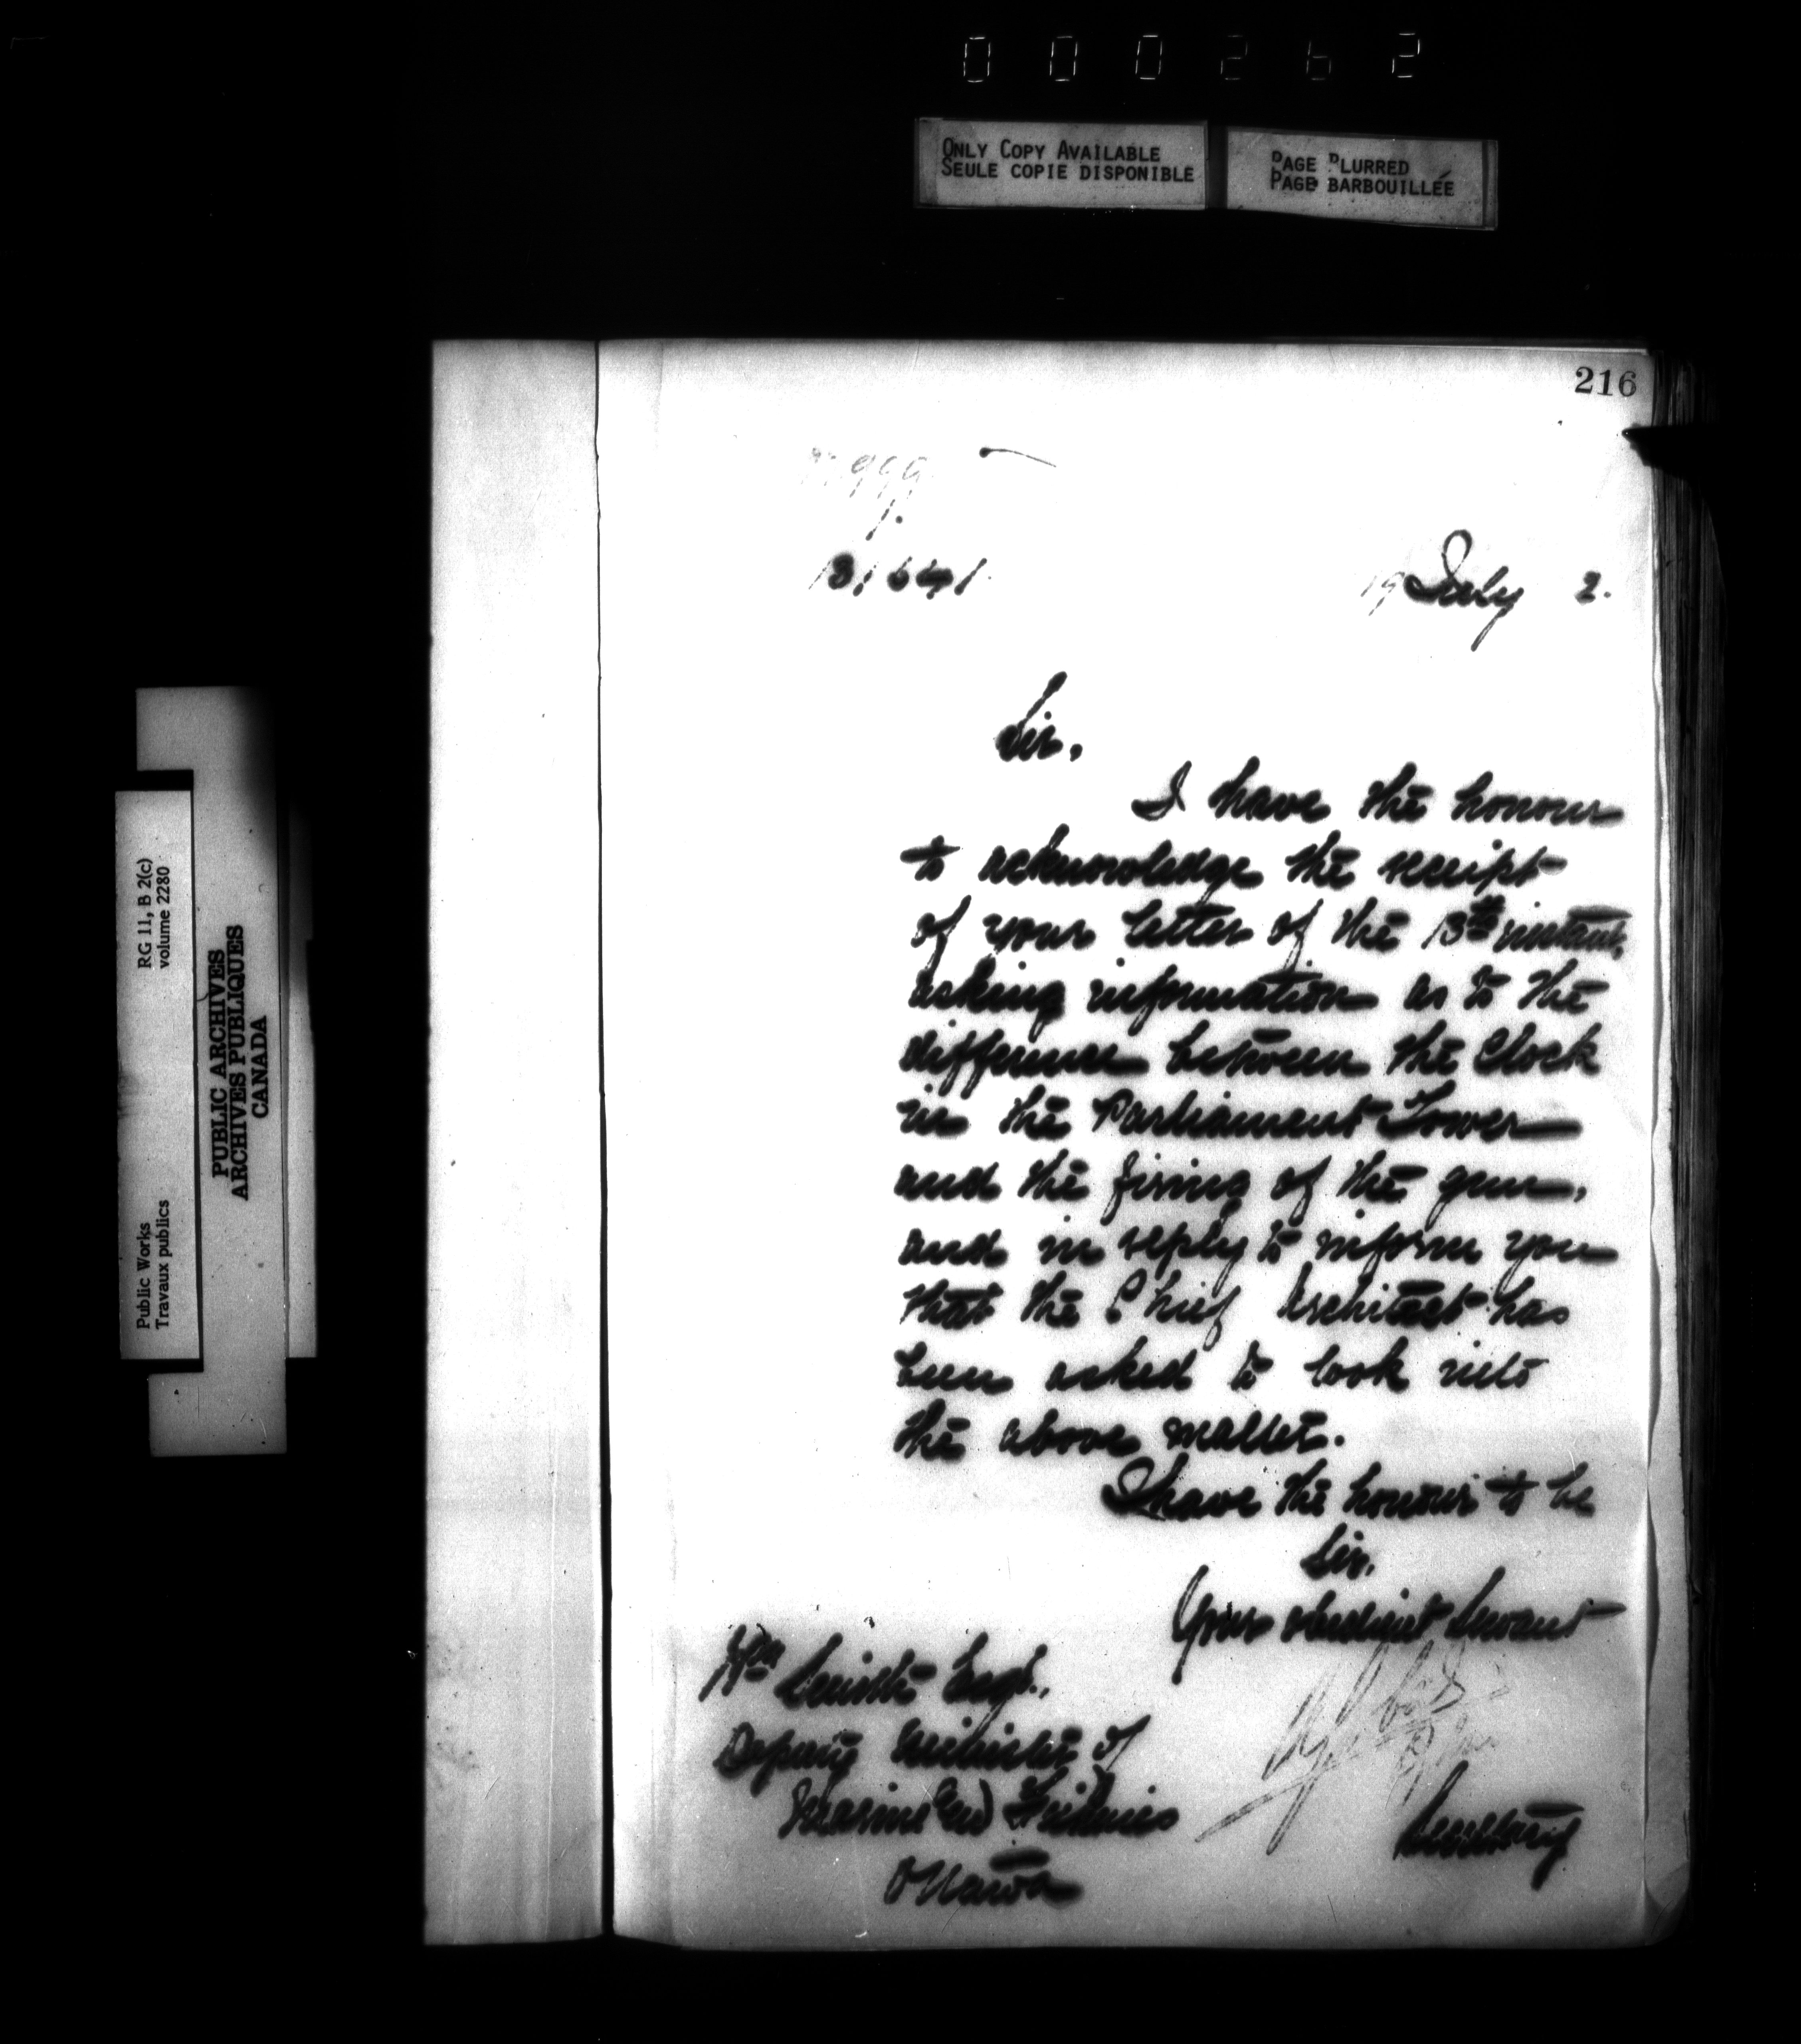 000262
ONLY COPY AVAILABLE
SEULE COPIE DISPONIBLE
PAGE BLURRED
PAGE BARBOUILLÉE
RG 11, B 2(c)
volume 2280
Public Works
Travaux publics
PUBLIC ARCHIVES
ARCHIVES PUBLIQUES
CANADA
216
131641.
19 July 2.
Sir,
I have the honour
to acknowledge the receipt
of your letter of the 13th instant,
asking information as to the
difference between the Clock
in the Parliament Tower
and the firing of the gun,
and in reply to inform you
that the Chief Architect has
been asked to look into
the above matter.
I have the honour to be
Sir,
Your obedient Servant
Wm Smith Esq.,
Deputy Minister of
Marine and Fisheries
Ottawa
Secretary